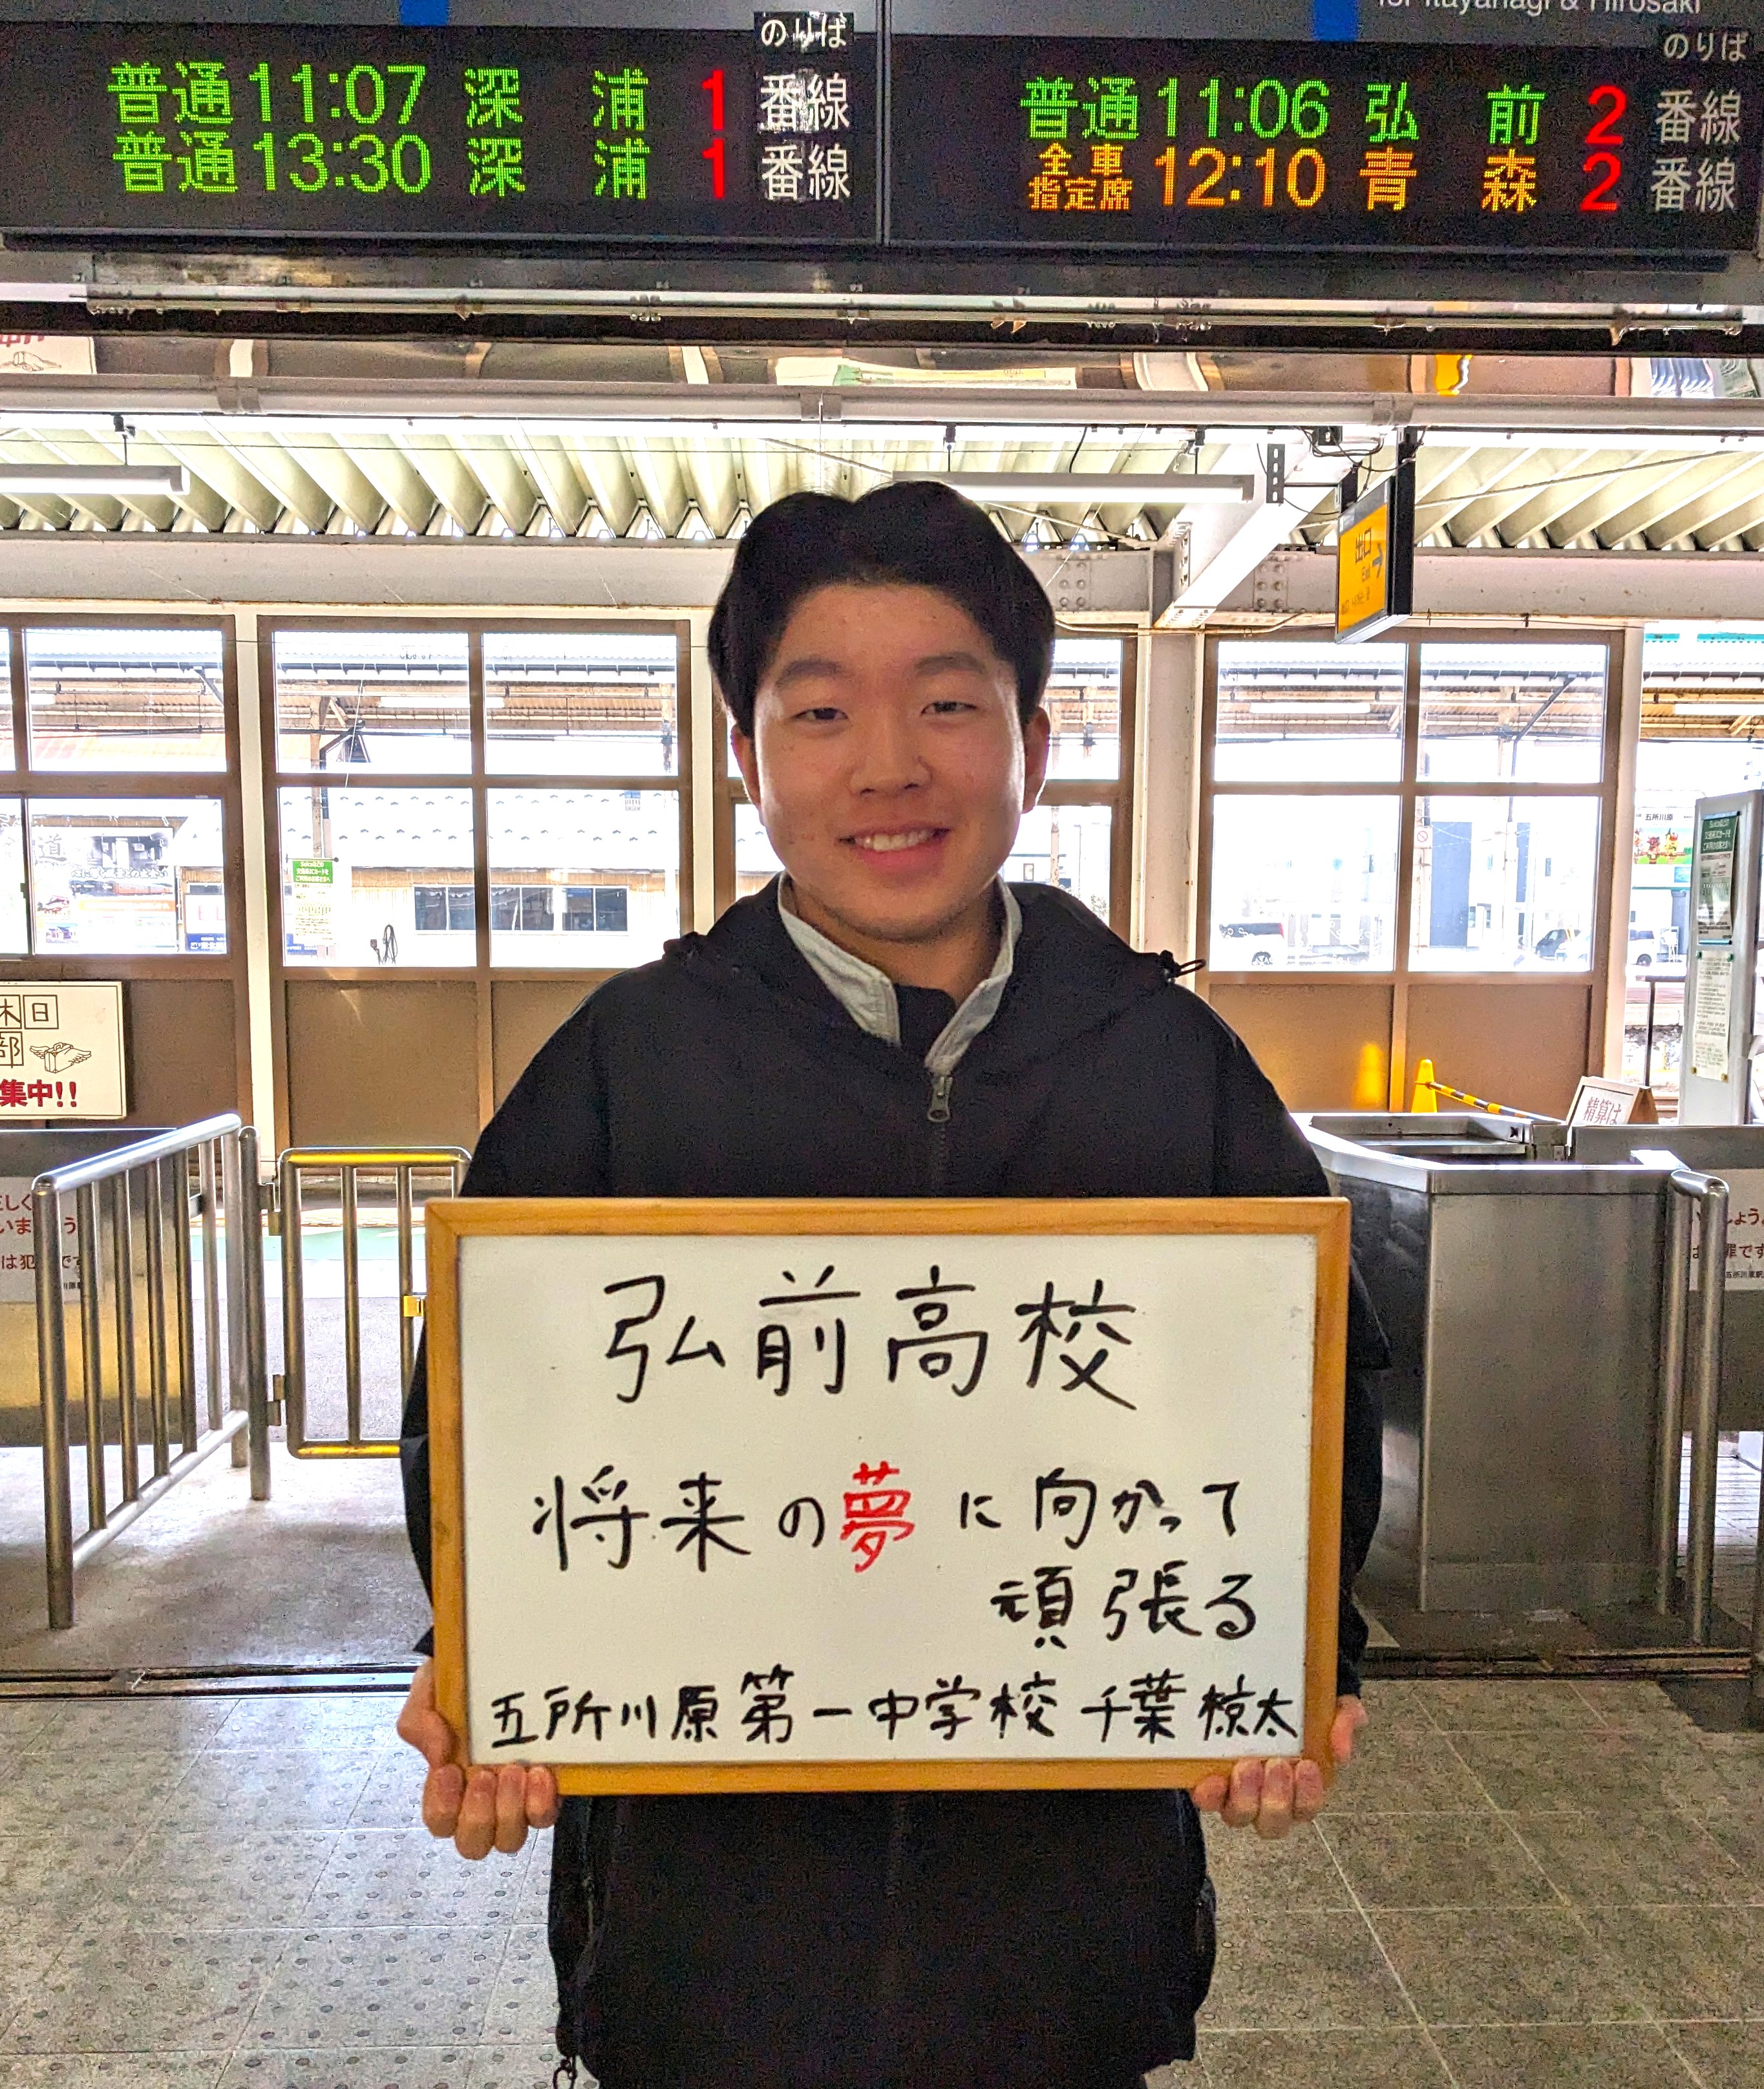 for Itayanagi & Hirosaki
のりば
普通 11:07 深浦 1 番線
普通 13:30 深浦 1 番線
のりば
普通 11:06 弘前 2 番線
全車指定席 12:10 青森 2 番線
出口
Exit
五所川原
休日
部
集中!!
精算は
弘前高校
将来の夢に向かって
頑張る
五所川原第一中学校 千葉 椋太